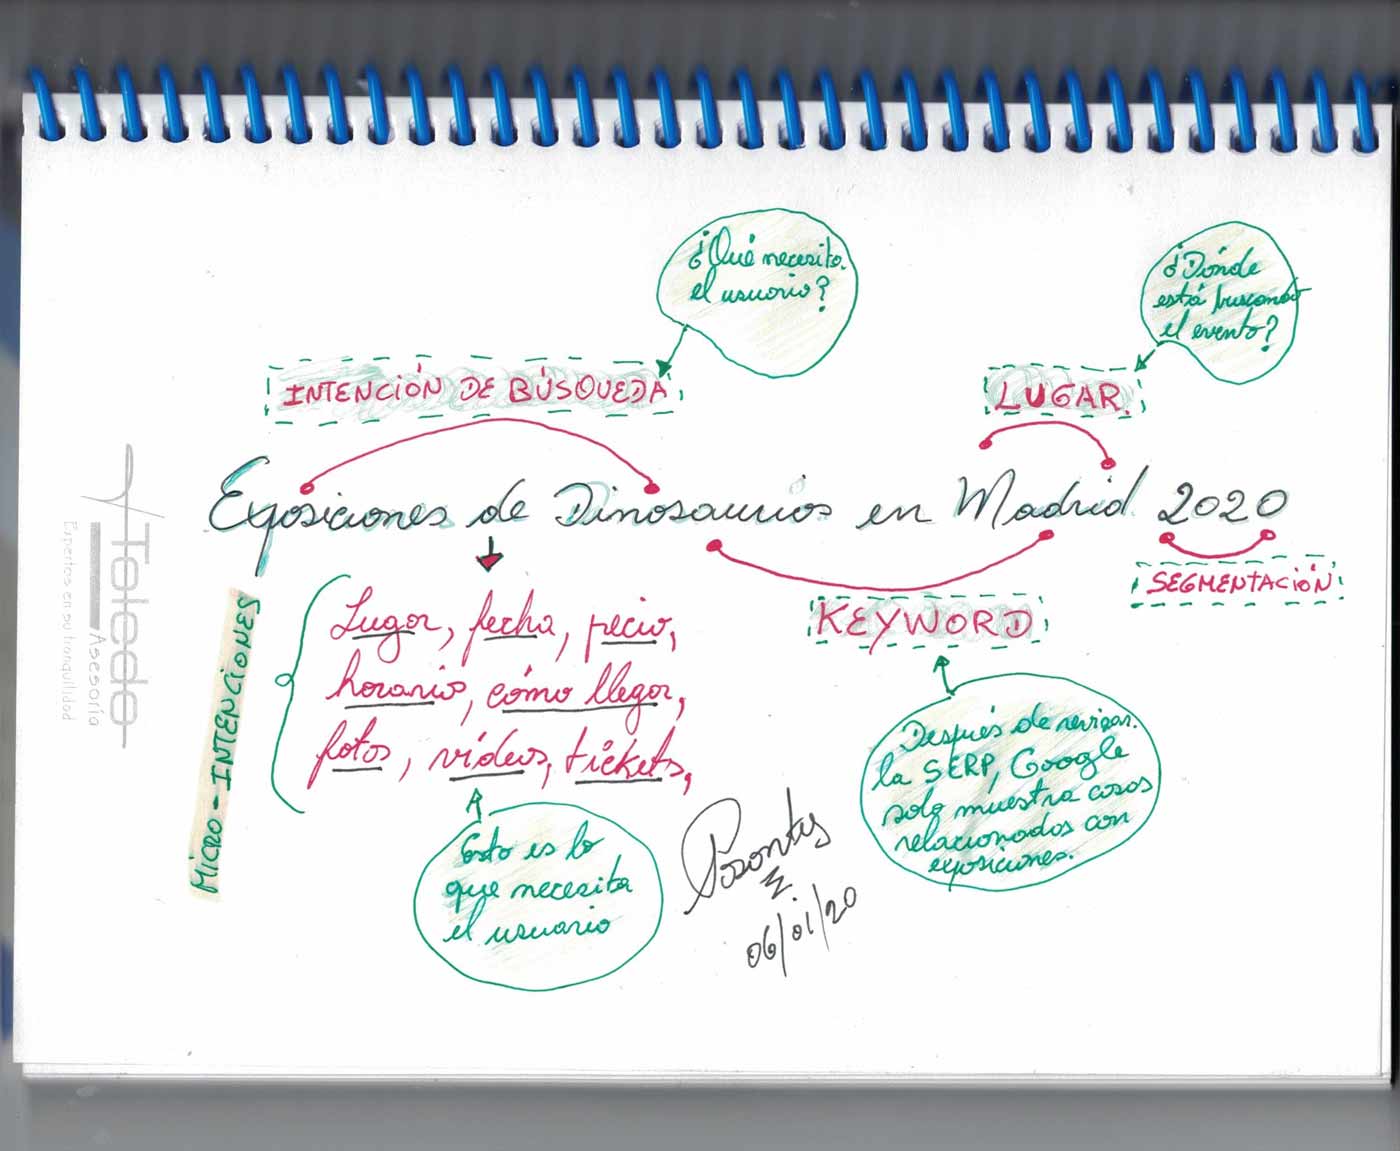 ¿Qué necesita
el usuario?
¿Dónde
está buscando
el evento?
INTENCIÓN DE BÚSQUEDA
LUGAR
Exposiciones de Dinosaurios en Madrid 2020
SEGMENTACIÓN
KEYWORD
MICRO-INTENCIONES
Lugar, fecha, pecio,
horario, cómo llegar,
fotos, vídeos, tickets,
Esto es lo
que necesita
el usuario
Después de revisar
la SERP, Google
solo muestra cosas
relacionados con
exposiciones.
06/01/20
Toledo
Asesoría
Expertos en su tranquilidad